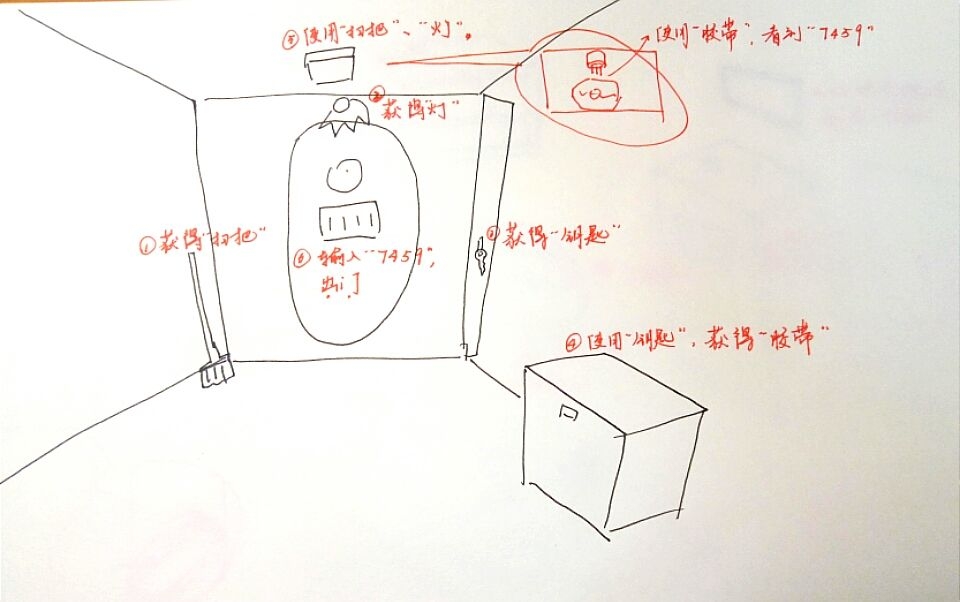 ⑤使用"扫把"、"灯"。
使用"胶带",看到"7459"
②
获得"灯"
①获得"扫把"
③获得"钥匙"
⑥输入"7459",
出门
④使用"钥匙",获得"胶带"